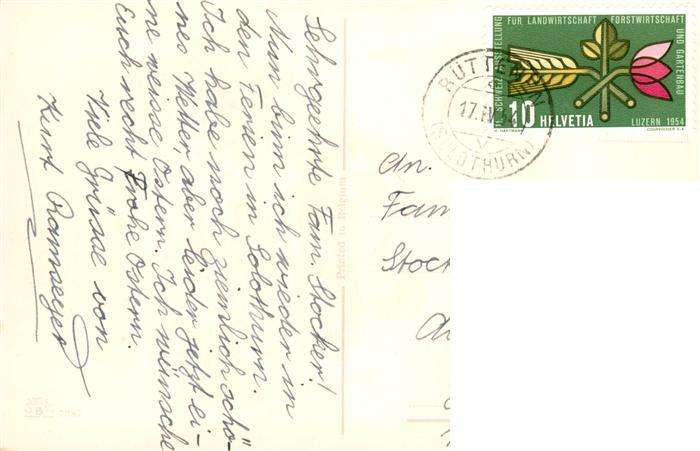 Sehrgeehrte Fam. Stocker!
Nun bim ich wieder in
den Ferien in Solothurn.
Ich habe noch ziemlich schö-
nes Wetter, aber leider jetzt ei-
ne weisse Ostern. Ich wünsche
Euch recht Frohe Ostern.
Viele Grüsse von
Kurt Ramseyer
Printed in Belgium
An.
Fam
Stock
SCHWEIZ. AUSSTELLUNG FÜR LANDWIRTSCHAFT FORSTWIRTSCHAFT UND GARTENBAU
10 HELVETIA
LUZERN 1954
17.IV.54
(SOLOTHURN)